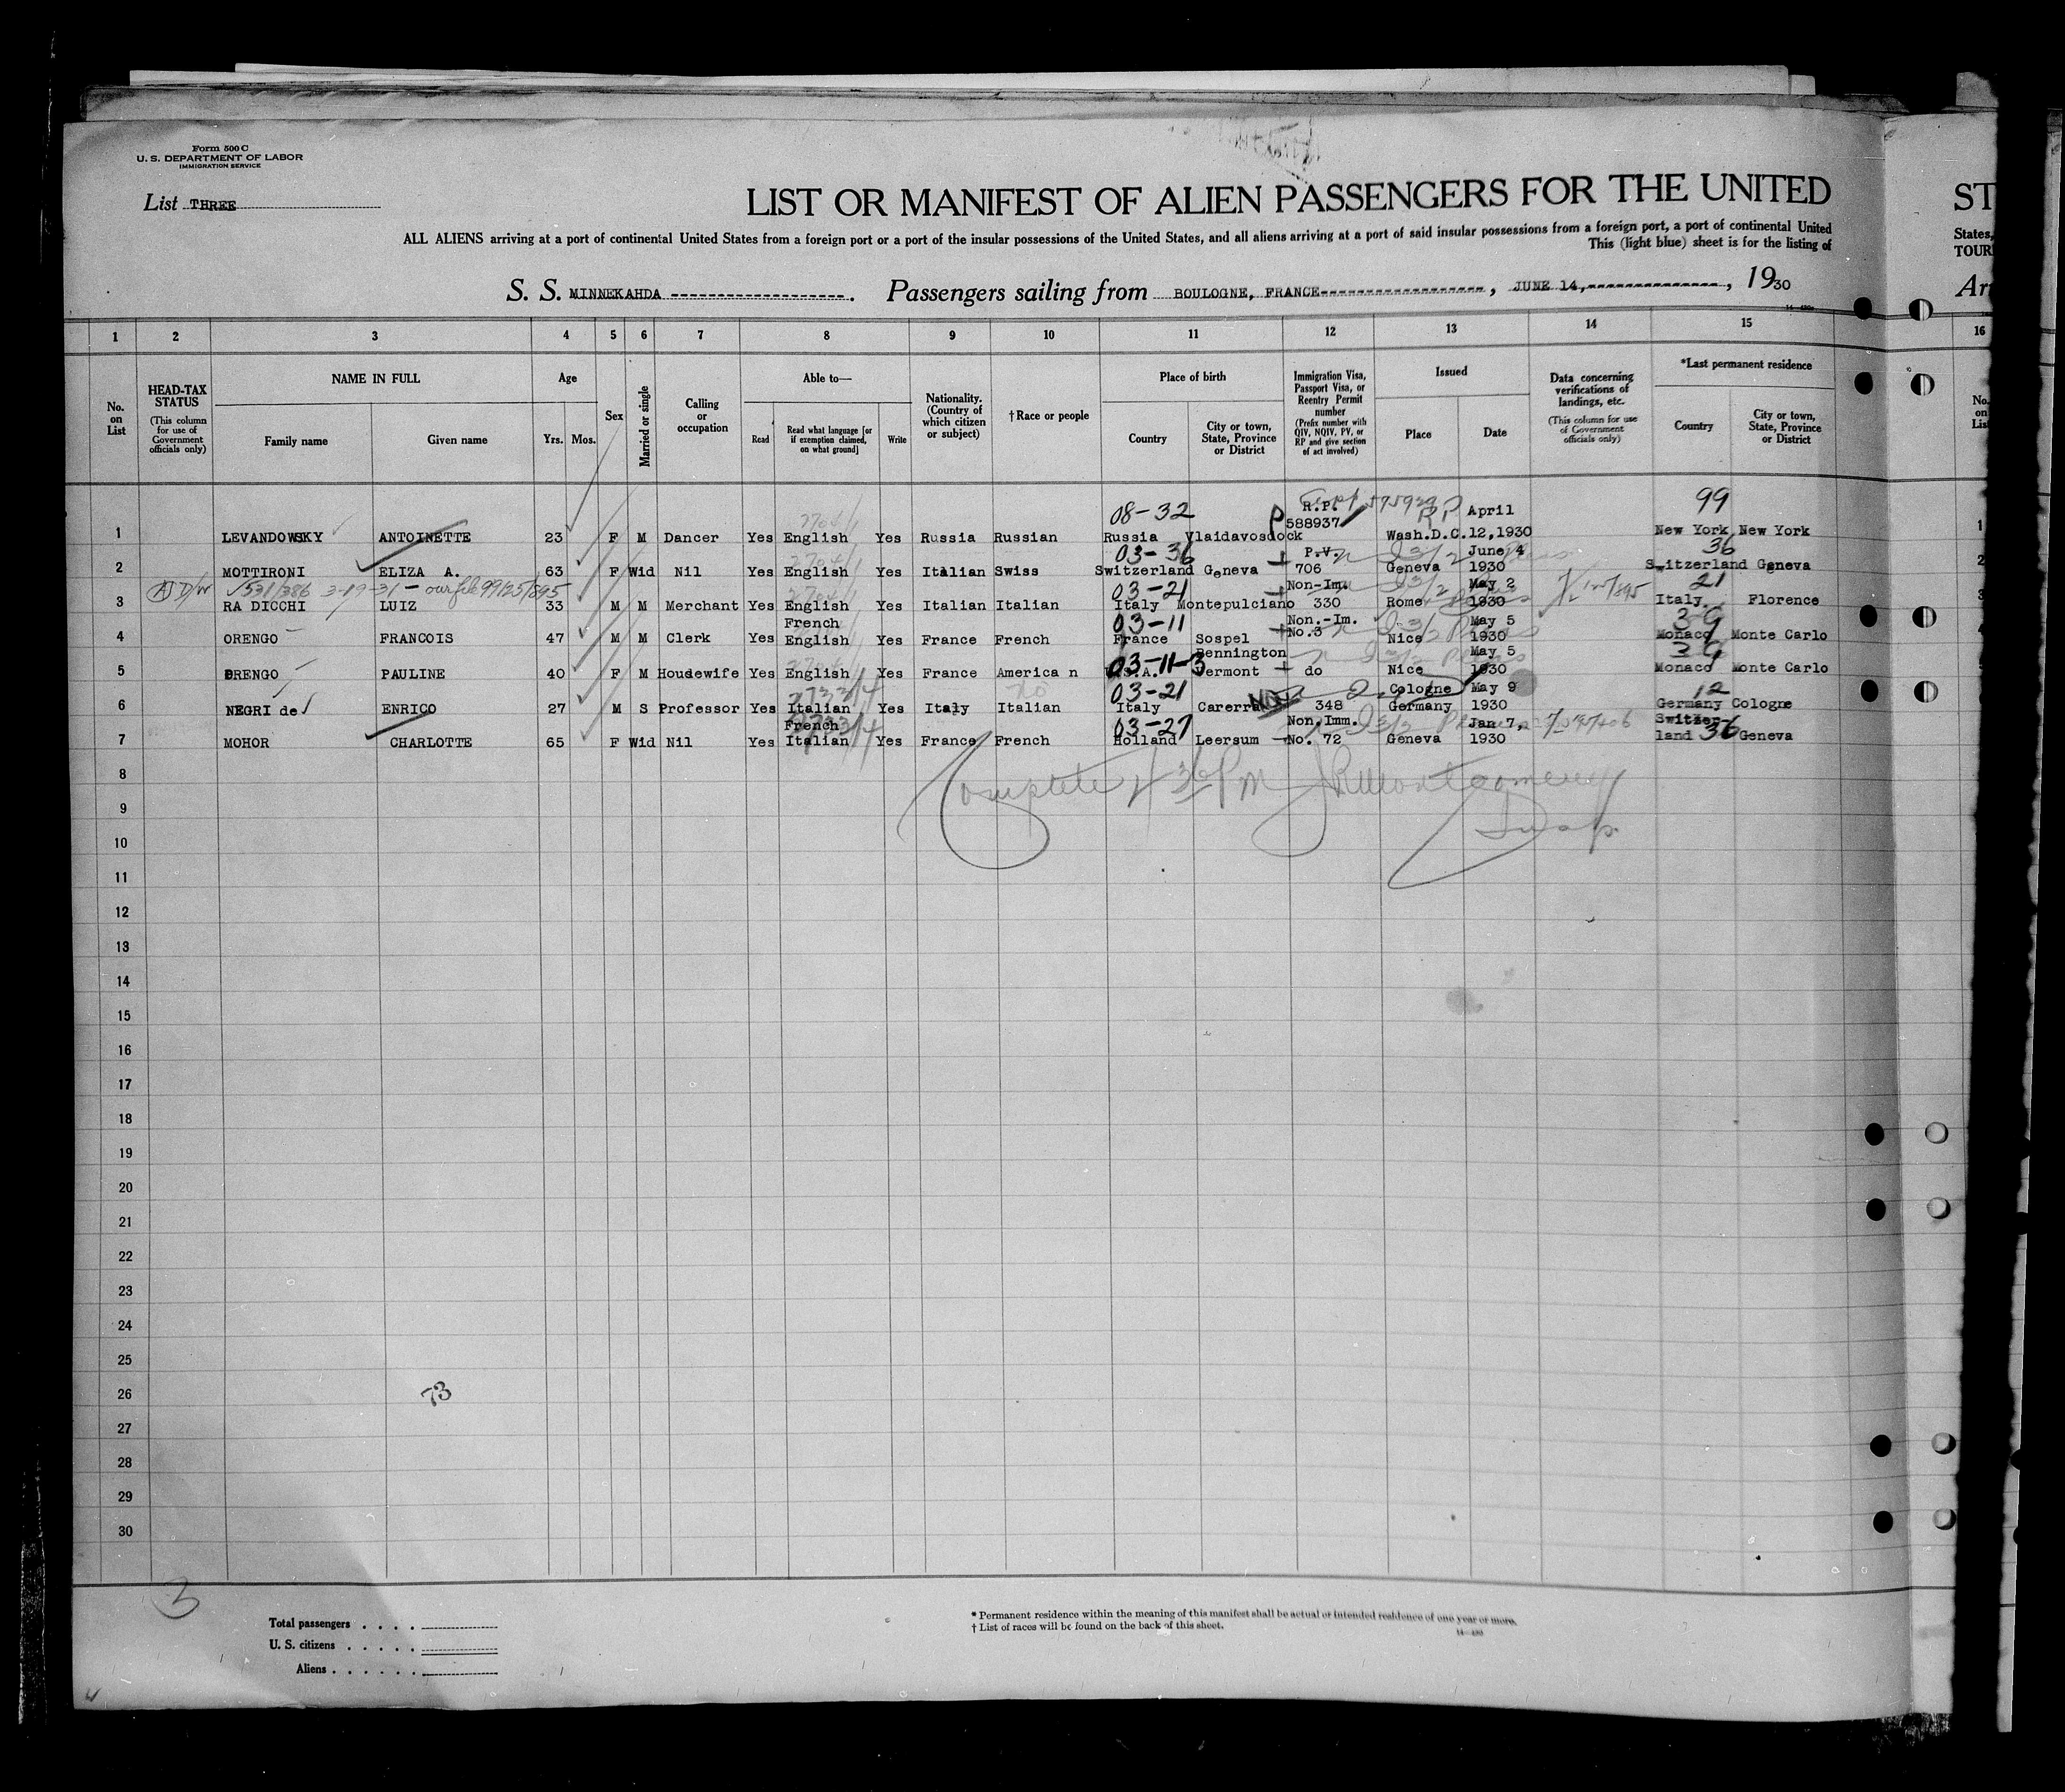 Form 500 C
U. S. DEPARTMENT OF LABOR
IMMIGRATION SERVICE
List THREE
LIST OR MANIFEST OF ALIEN PASSENGERS FOR THE UNITED
ST
ALL ALIENS arriving at a port of continental United States from a foreign port or a port of the insular possessions of the United States, and all aliens arriving at a port of said insular possessions from a foreign port, a port of continental United
States,
This (light blue) sheet is for the listing of
TOUR
S. S. MINNEKAHDA -------------------. Passengers sailing from BOULOGNE, FRANCE------------------, JUNE 14,---------------, 1930
Ar
1 2 3 4 5 6 7 8 9 10 11 12 13 14 15 16
No. on List
HEAD-TAX STATUS (This column for use of Government officials only)
NAME IN FULL Family name Given name
Age Yrs. Mos.
Sex
Married or single
Calling or occupation
Able to— Read Read what language [or if exemption claimed, on what ground] Write
Nationality. (Country of which citizen or subject)
†Race or people
Place of birth Country City or town, State, Province or District
Immigration Visa, Passport Visa, or Reentry Permit number (Prefix number with QIV, NQIV, PV, or RP and give section of act involved)
Issued Place Date
Data concerning verifications of landings, etc. (This column for use of Government officials only)
*Last permanent residence Country City or town, State, Province or District
No. on Lis
08-32 R.P. RP April 99
1 LEVANDOWSKY ANTOINETTE 23 F M Dancer Yes English Yes Russia Russian Russia Vlaidavosdock P 588937 Wash.D.C. 12,1930 New York New York 1
03-36 P.V. June 4 36
2 MOTTIRONI ELIZA A. 63 F Wid Nil Yes English Yes Italian Swiss Switzerland Geneva 706 Geneva 1930 Switzerland Geneva 2
A D/W 531/386 3-19-31 - our file 99125/895 03-21 Non-Im. May 2 21
3 RA DICCHI LUIZ 33 M M Merchant Yes English Yes Italian Italian Italy Montepulciano 330 Rome 1930 Italy Florence 3
French 03-11 Non.-Im. May 5 39
4 ORENGO FRANCOIS 47 M M Clerk Yes English Yes France French France Sospel No.3 Nice 1930 Monaco Monte Carlo 4
Bennington May 5 39
5 ORENGO PAULINE 40 F M Houdewife Yes English Yes France America n U.S.A. 03-11-3 Vermont do Nice 1930 Monaco Monte Carlo 5
2733/4 no 03-21 Cologne May 9 12
6 NEGRI de ENRICO 27 M S Professor Yes Italian Yes Italy Italian Italy Carerra 348 Germany 1930 Germany Cologne 6
French 2733/4 03-27 Non.Imm. Jan 7, Switzer-
7 MOHOR CHARLOTTE 65 F Wid Nil Yes Italian Yes France French Holland Leersum No. 72 Geneva 1930 land 36 Geneva 7
8 Complete 4 30 PM J R Montgomery
9
10
11
12
13
14
15
16
17
18
19
20
21
22
23
24
25
26 73
27
28
29
30
3
Total passengers . . . .
U. S. citizens . . . . .
Aliens . . . . . .
* Permanent residence within the meaning of this manifest shall be actual or intended residence of one year or more.
† List of races will be found on the back of this sheet.